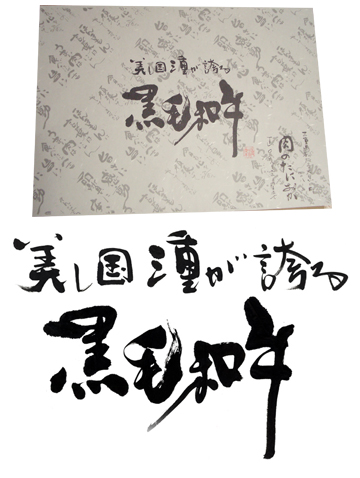 美し国 三重が誇る
黒毛和牛
肉のたにおか
美し国 三重が誇る
黒毛和牛